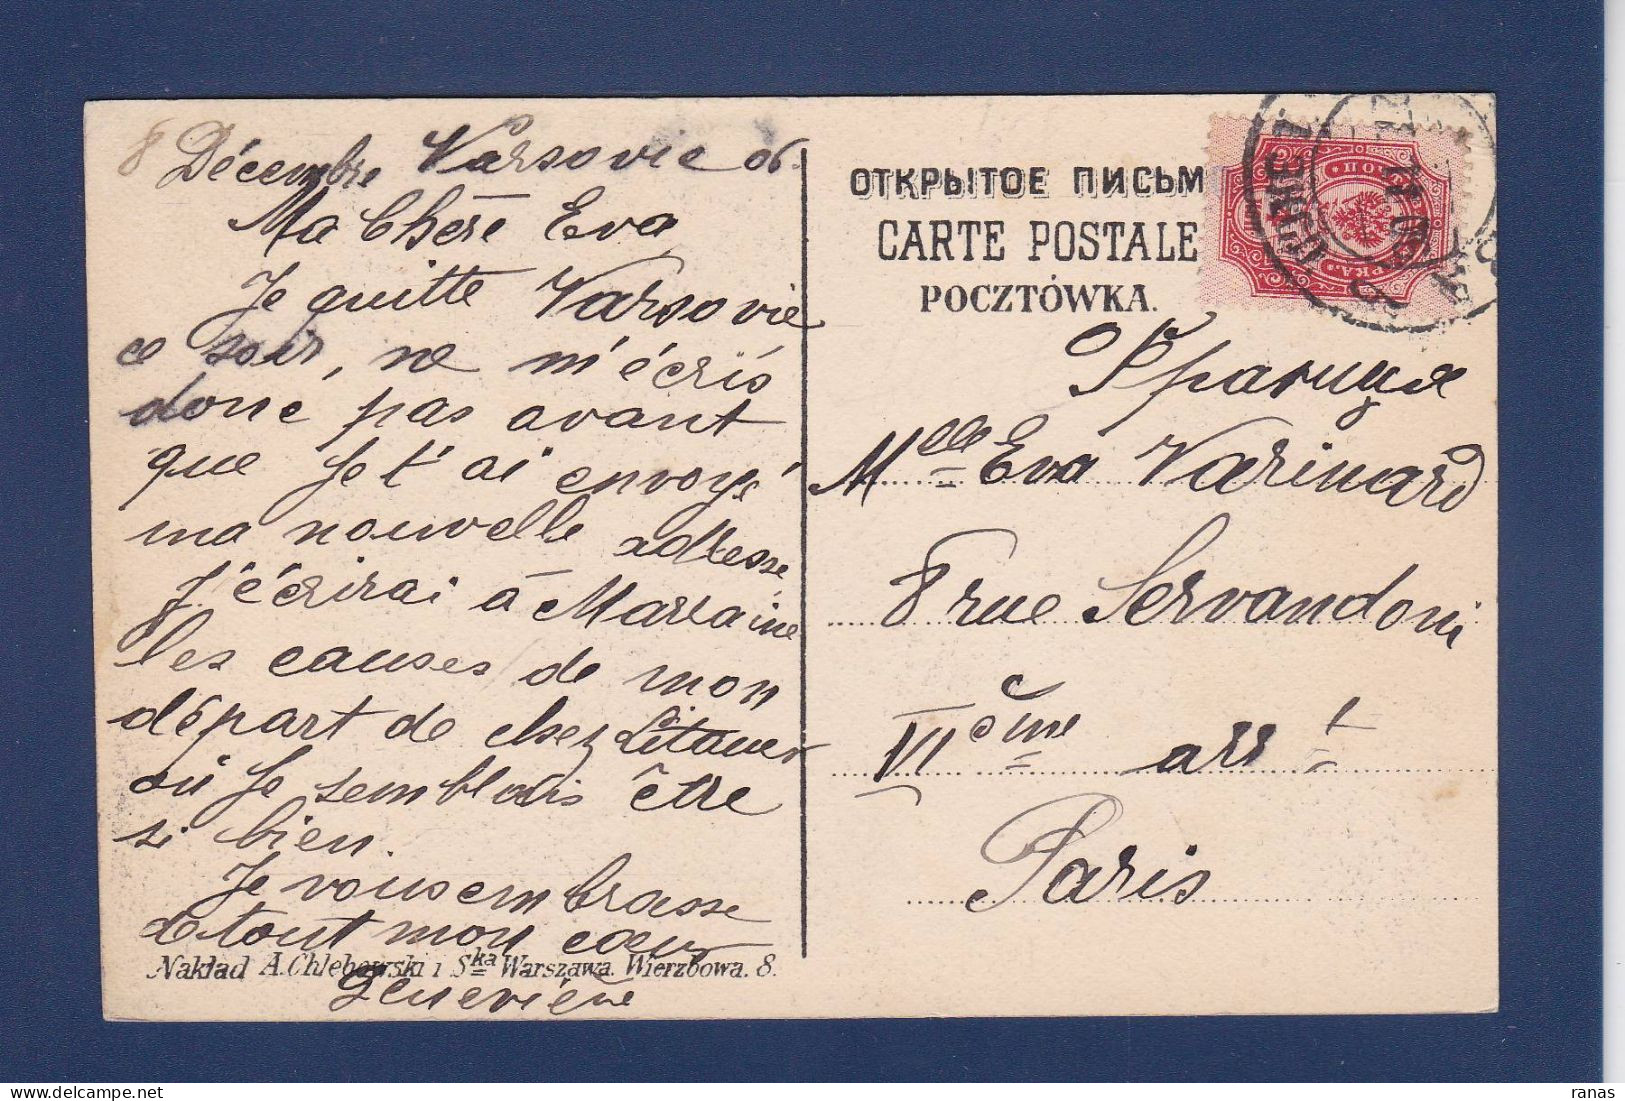 8 Décembre Varsovie 06.
Ma Chère Eva
Je quitte Varsovie
ce soir, ne m'écris
donc pas avant
que je t'ai envoyé
ma nouvelle adresse,
j'écrirai à Marraine
les causes de mon
départ de chez Litauer
où je semblais être
si bien.
Je vous embrasse
de tout mon cœur
Geneviève
Nakład A. Chlebowski i Ska Warszawa. Wierzbowa. 8.
ОТКРЫТОЕ ПИСЬМ
CARTE POSTALE
POCZTÓWKA.
Франция
Mlle Eva Varinard
8 rue Servandoni
VIème arrt
Paris
ranas